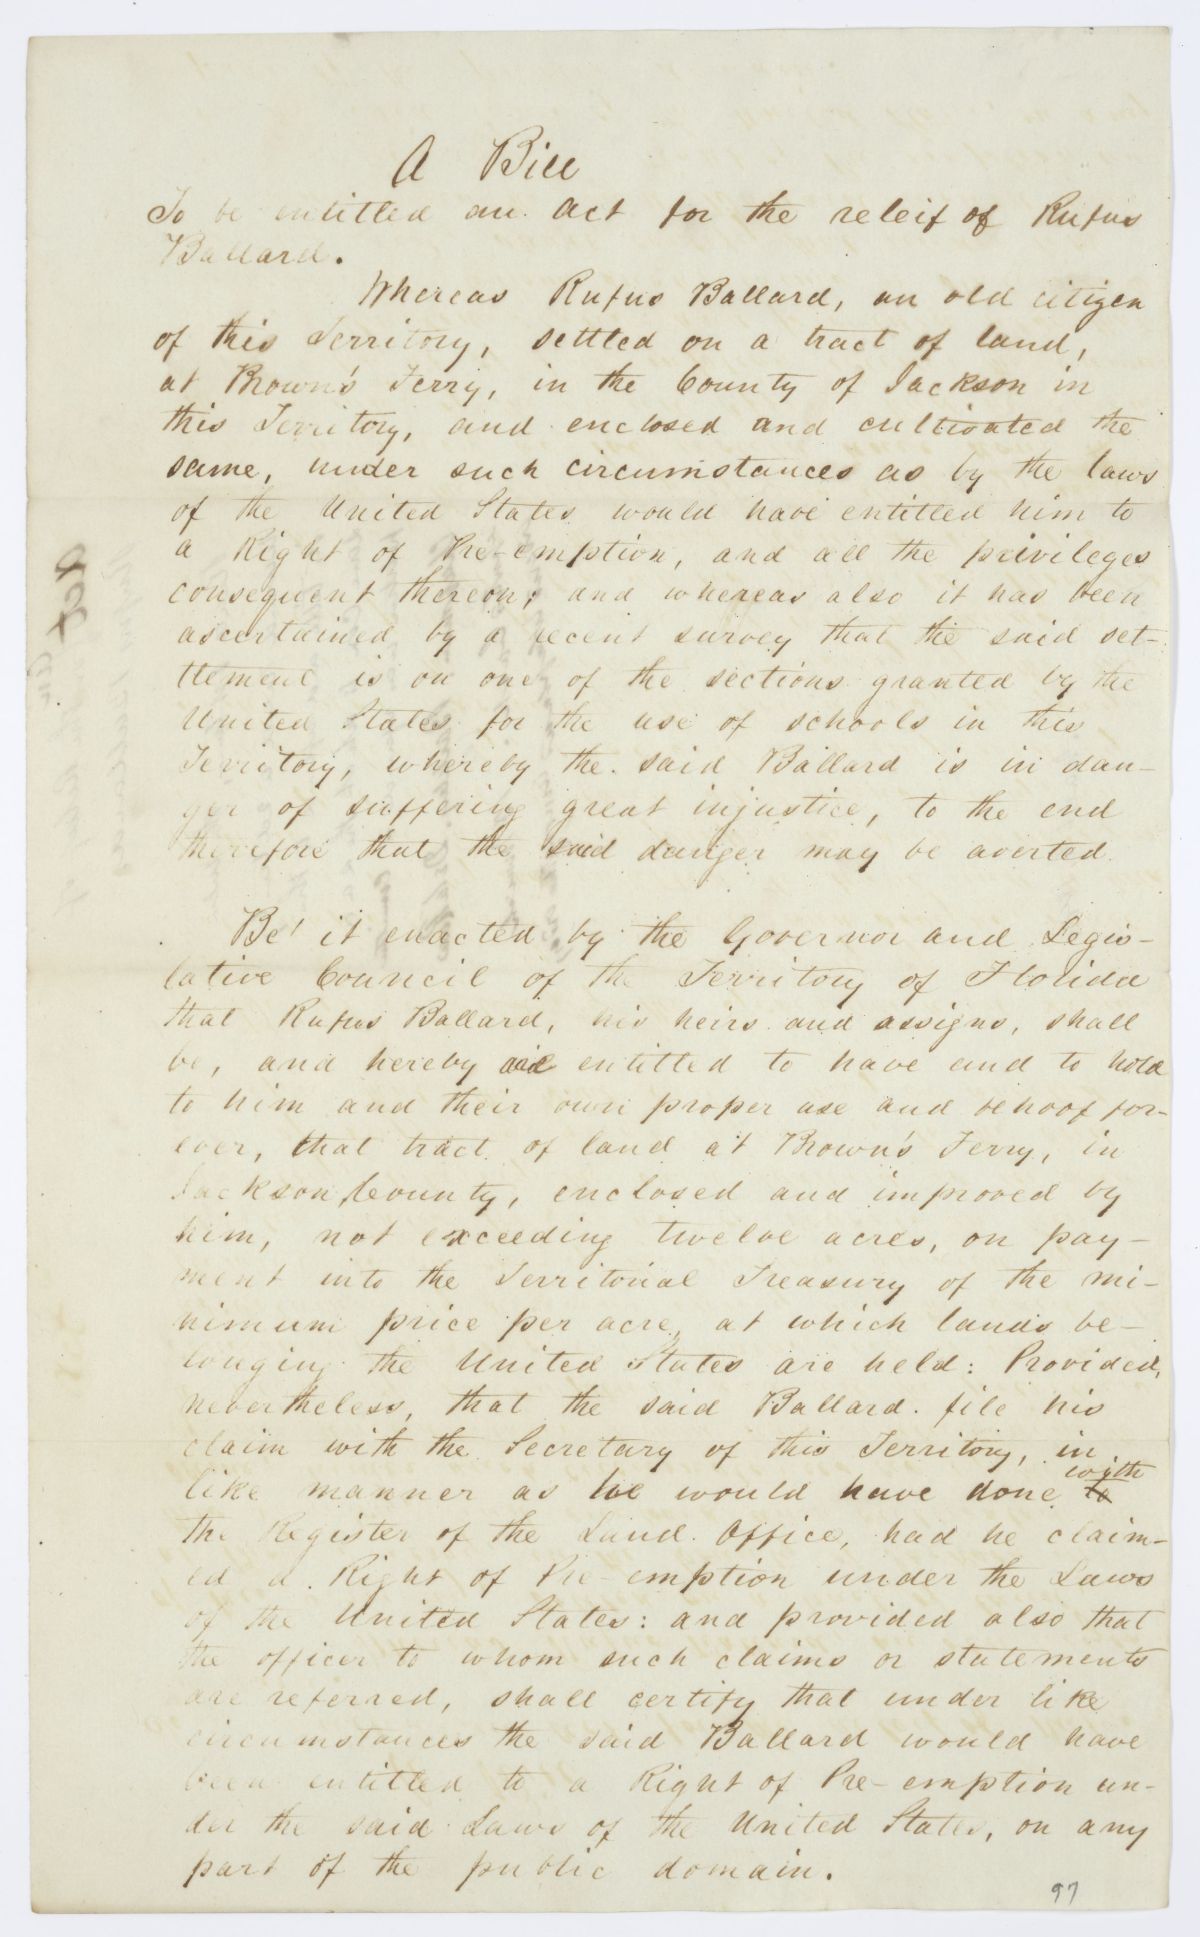 A Bill
To be entitled an. Act for the releif of Rufus
Ballard.
Whereas Rufus Ballard, an old citizen
of this Territory, settled on a tract of land,
at Brown's Ferry, in the County of Jackson in
this Territory, and enclosed and cultivated the
same, under such circumstances as by the laws
of the United States would have entitled him to
a Right of Pre-emption, and all the privileges
consequent thereon; and whereas also it has been
ascertained by a recent survey that the said set-
tlement is on one of the sections granted by the
United States for the use of schools in this
Territory, whereby the said Ballard is in dan-
ger of suffering great injustice, to the end
therefore that the said danger may be averted.
Be it enacted by the Governor and Legis-
lative Council of the Territory of Florida
that Rufus Ballard, his heirs and assigns, shall
be, and hereby are entitled to have and to hold
to him and their own proper use and behoof for-
ever, that tract of land at Brown's Ferry, in
Jackson County, enclosed and improved by
him, not exceeding twelve acres, on pay-
ment into the Territorial Treasury of the mi-
nimum price per acre, at which lands be-
longing the United States are held: Provided,
nevertheless, that the said Ballard. file his
claim with the Secretary of this Territory, in
like manner as he would have done to with
the Register of the Land Office, had he claim-
ed a Right of Pre-emption under the Laws
of the United States: and provided also that
the officer to whom such claims or statements
are referred, shall certify that under like
circumstances the said Ballard would have
been entitled to a Right of Pre-emption un-
der the said Laws of the United States, on any
part of the public domain.
97